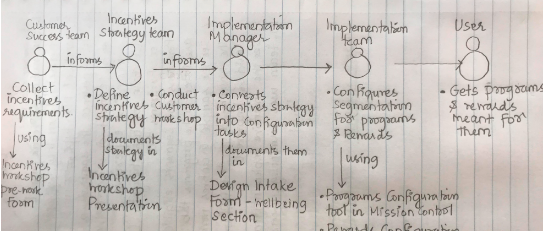 Customer
Success team
Incentives
Strategy team
Implementation
Manager
Implementation
team
User
informs
informs
Collect
incentives
requirements
using
Incentives
workshop
pre-work
Form
• Define
incentives
strategy
documents
strategy in
Incentives
workshop
Presentation
• Conduct
Customer
workshop
• Converts
incentives strategy
into Configuration
tasks
documents them
in
Design Intake
Form - wellbeing
section
• Configures
segmentation
for programs
& Rewards
using
• Programs Configuration
tool in Mission Control
• Rewards Configuration
• Gets programs
& rewards
meant for
them